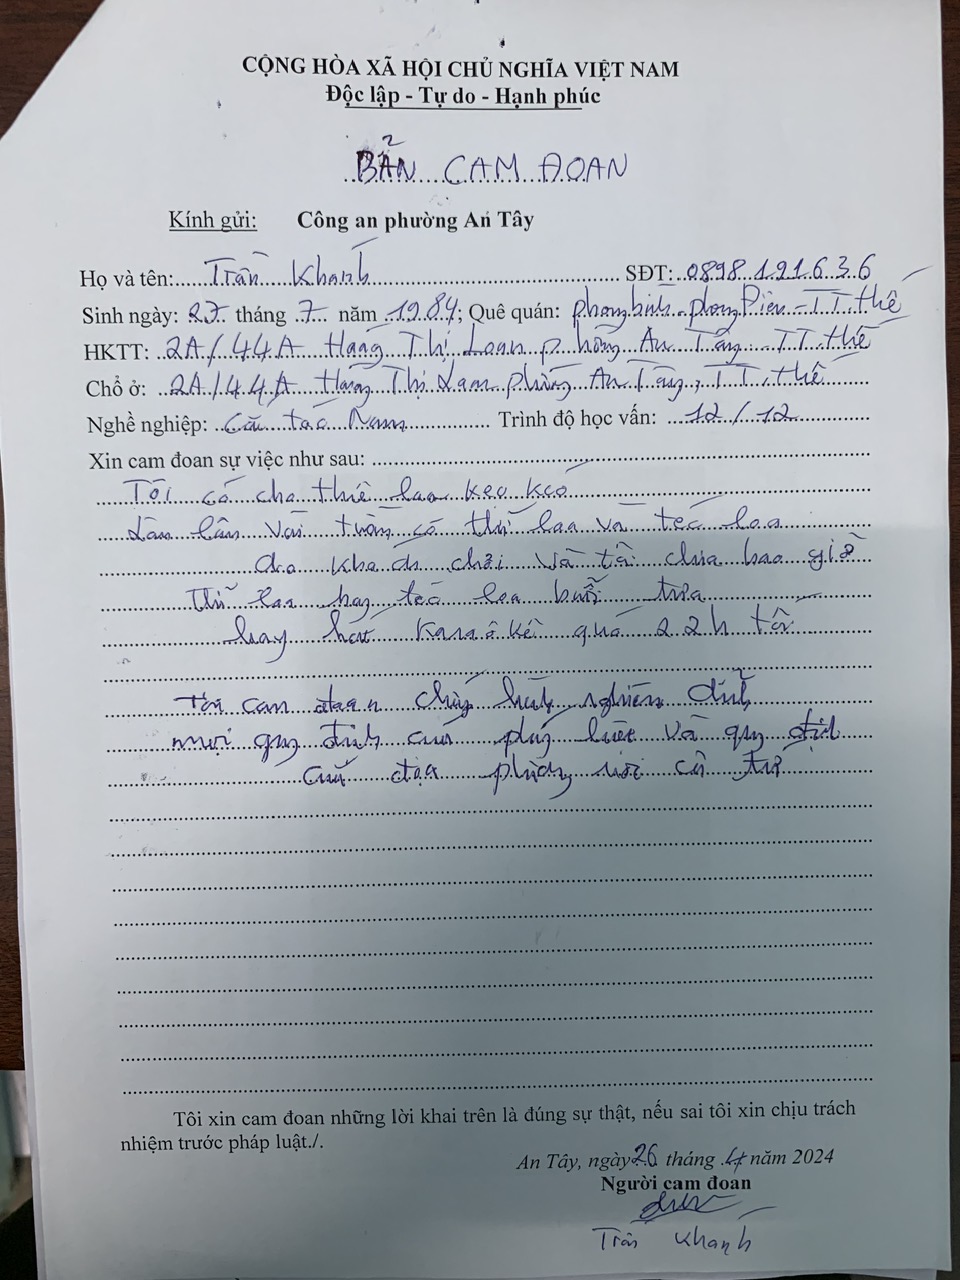 CỘNG HÒA XÃ HỘI CHỦ NGHĨA VIỆT NAM
Độc lập - Tự do - Hạnh phúc
BẢN CAM ĐOAN
Kính gửi: Công an phường An Tây
Họ và tên: Trần Khanh SĐT: 0898 191 636
Sinh ngày: 27 tháng 7 năm 1984; Quê quán: phong bình - phong Điền - TT.Huế
HKTT: 2A/44A Hàng Thị Loan phường An Tây TT. Huế
Chổ ở: 2A/44A Thị Loan phường An Tây, TT. Huế
Nghề nghiệp: Trình độ học vấn: 12/12
Xin cam đoan sự việc như sau:
Tôi có cho thuê loa kẹo kéo
vài tuần có thử loa và loa
do khách và tôi chưa bao giờ
thử loa hay loa buổi trưa
hay hát Karaôkê quá 22h tối
Tôi cam đoan chấp hành nghiêm chỉnh
mọi quy định của pháp luật và quy định
của địa phương nơi cư trú
Tôi xin cam đoan những lời khai trên là đúng sự thật, nếu sai tôi xin chịu trách
nhiệm trước pháp luật./.
An Tây, ngày 26 tháng 4 năm 2024
Người cam đoan
Trần Khanh